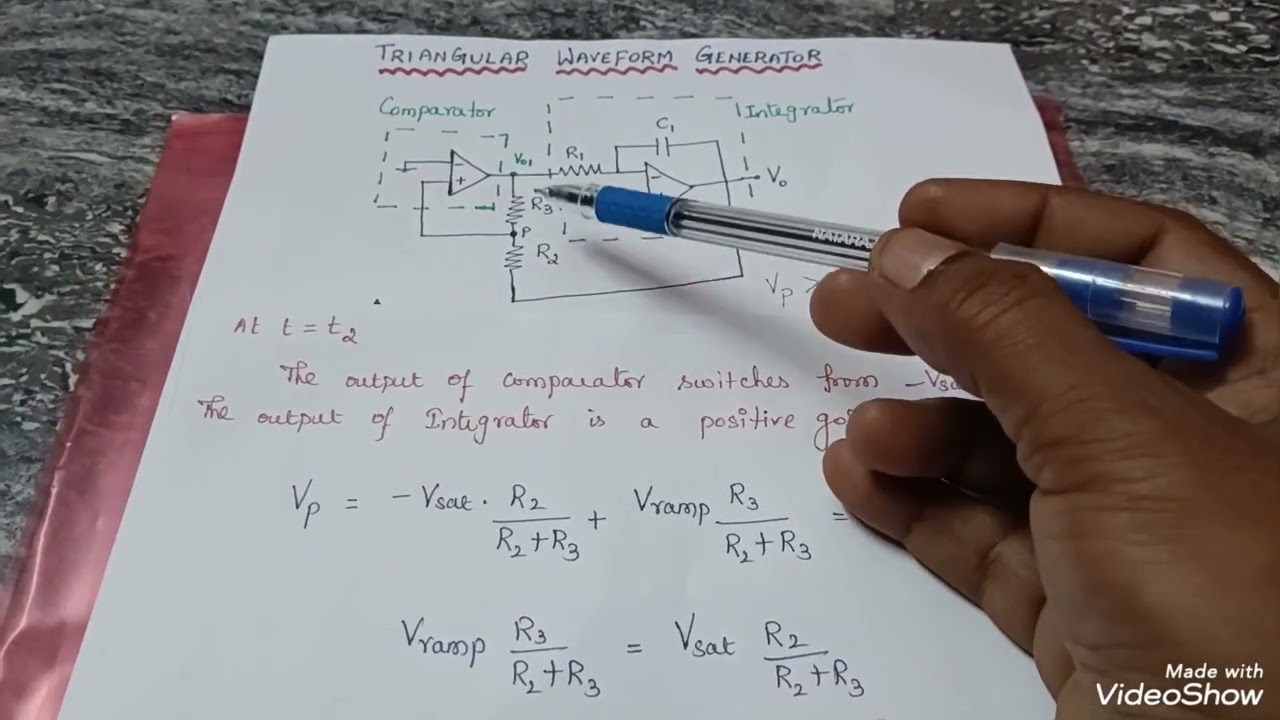 TRIANGULAR WAVEFORM GENERATOR
Comparator
Integrator
C1
R1
Vo1
-
+
-
Vo
R3
P
R2
Vp >
At t = t2
The output of comparator switches from -Vsa
The output of Integrator is a positive go
Vp = - Vsat . R2/(R2+R3) + Vramp R3/(R2+R3) =
Vramp R3/(R2+R3) = Vsat R2/(R2+R3)
NATARA
Made with
VideoShow